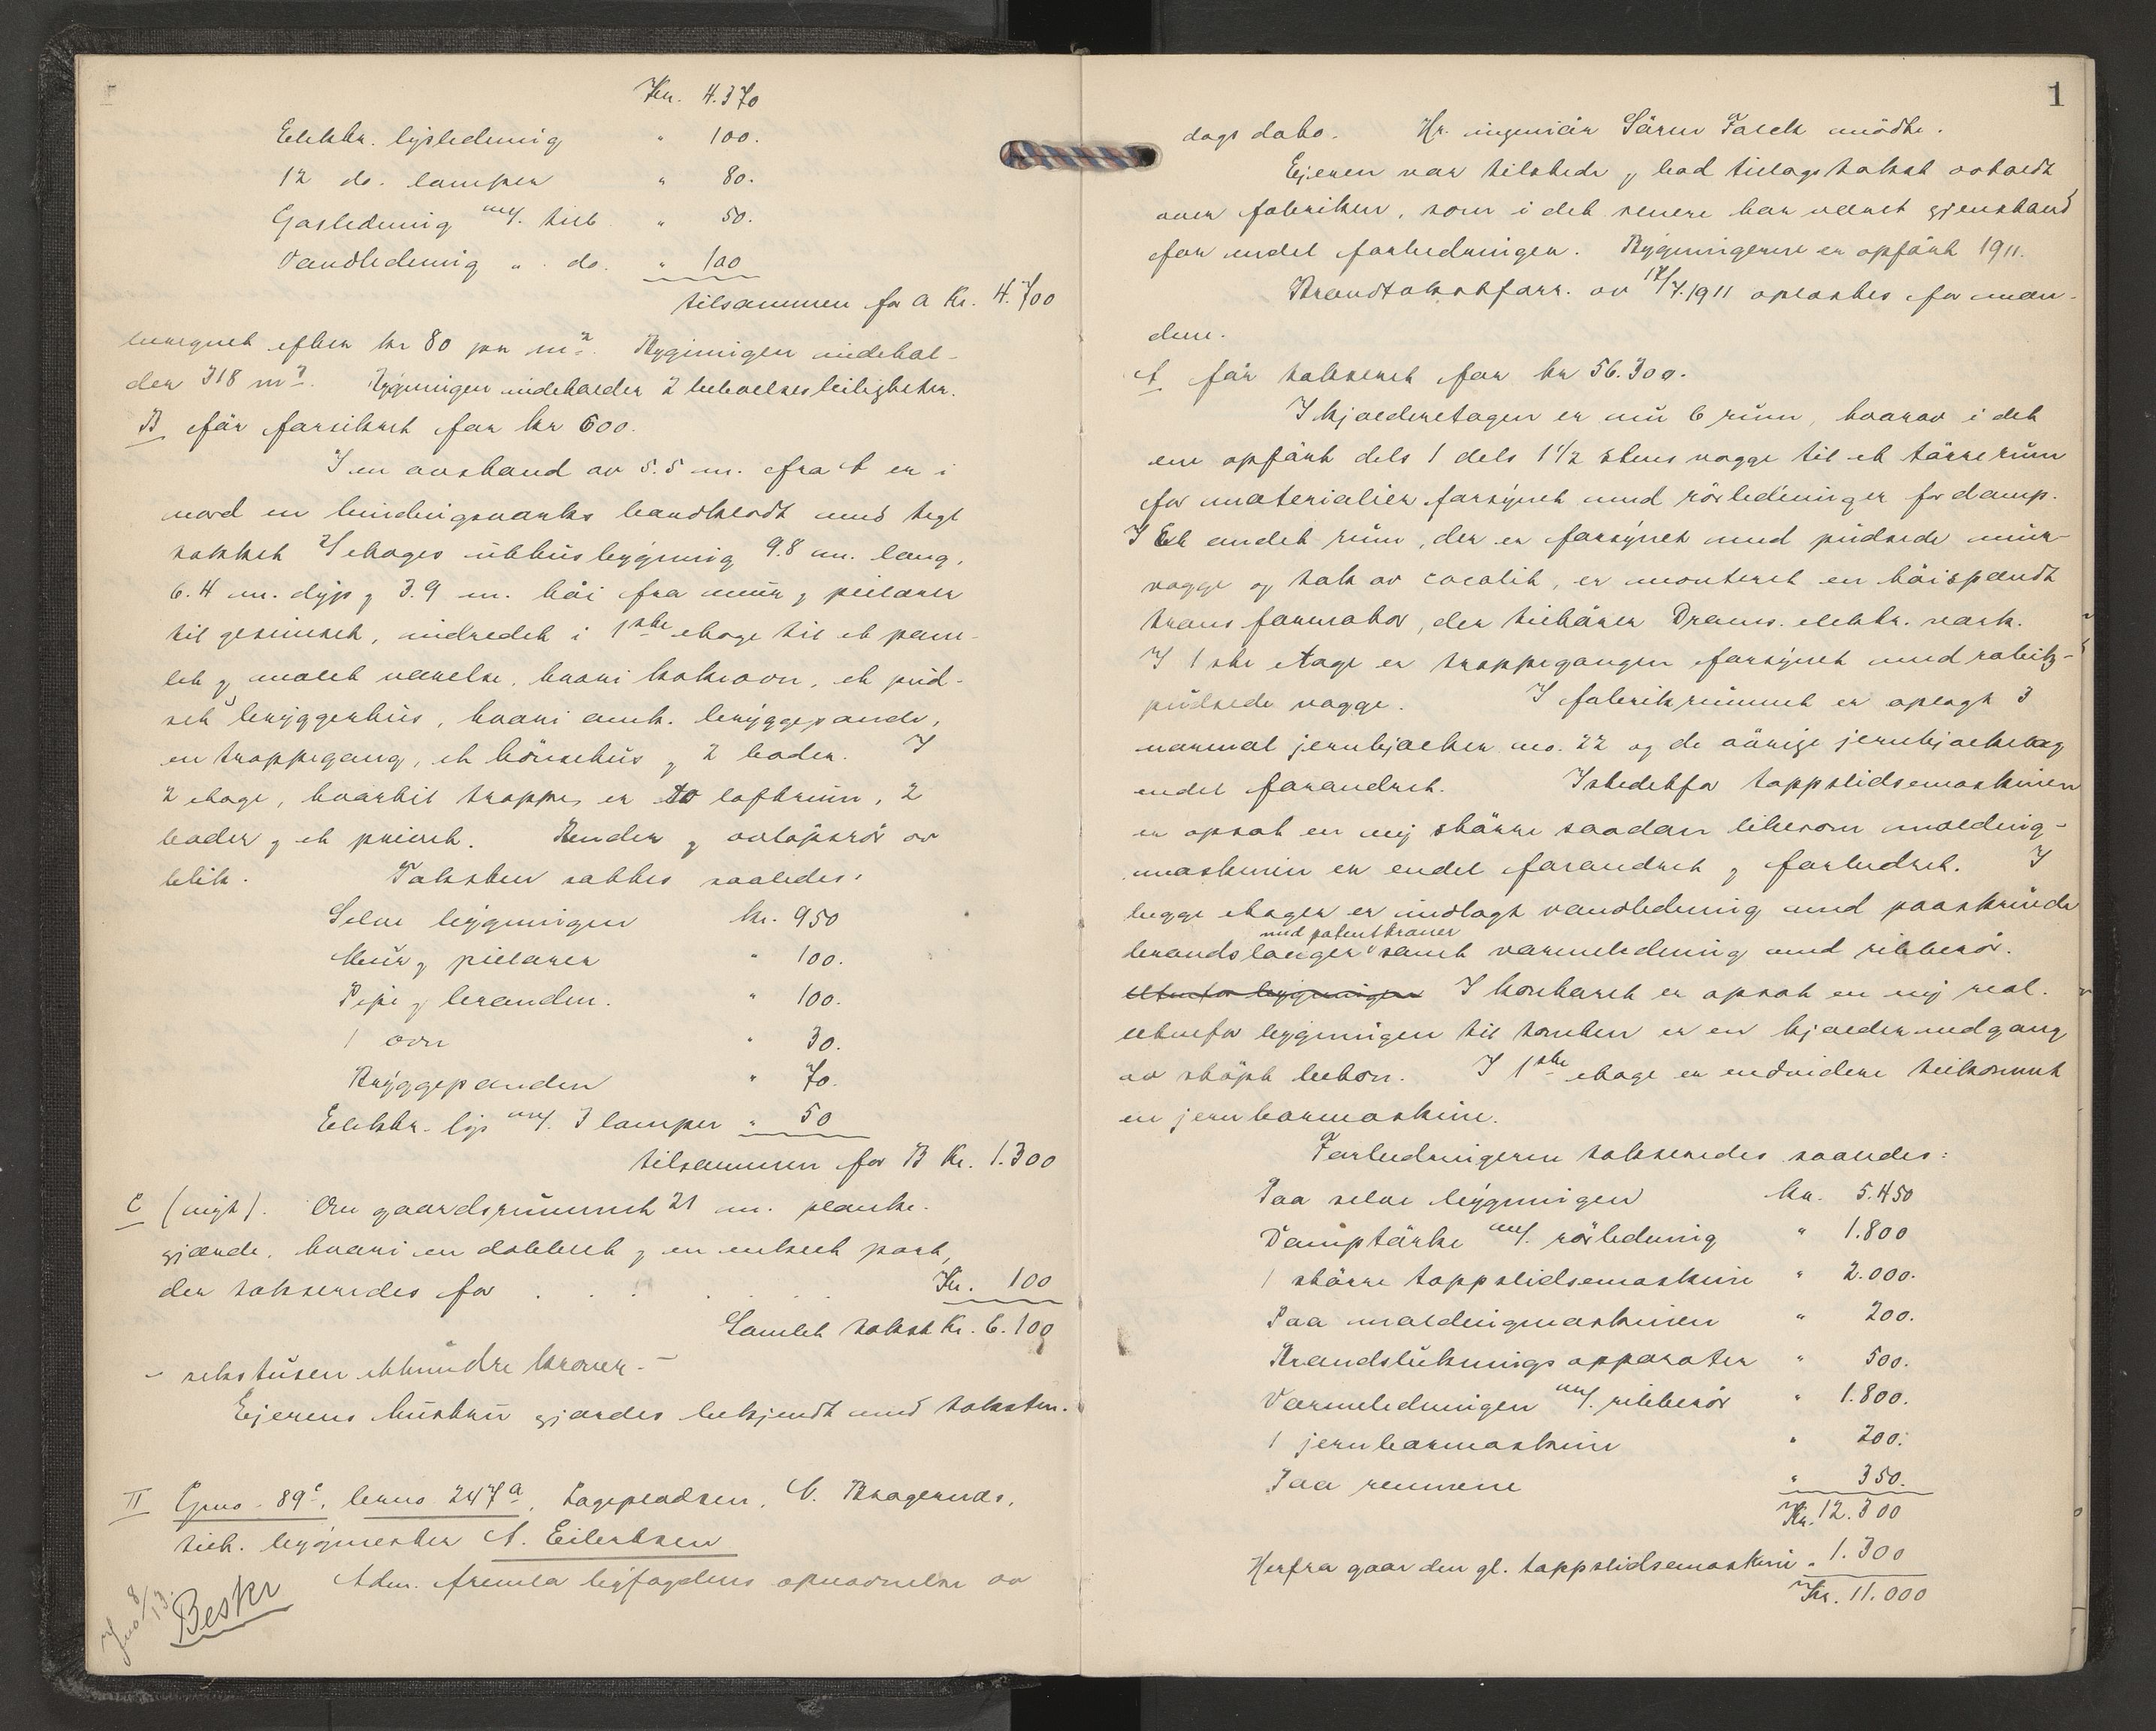 Kr. 4.370
Elektr. lysledning " 100.
12 do. lamper " 80.
Gasledning m/. tilb. " 50.
Vandledning " do. " 100
tilsammen for A Kr. 4.700
beregnet efter kr 80 pr m². Bygningen indehol-
der 318 m³. Bygningen indeholder 2 beboelsesleiligheter.
B før forsikret for kr 600.
I en avstand av 5.5 m. fra A er i
nord en bindingsverks bordklædt med tegl
tækket 2 etages uthusbygning 9.8 m. lang,
6.4 m. dyp og 3.9 m. høi fra mur og pillarer
til gesimset, indredet i 1ste etage til et pane-
let og malet værelse, hvori kokeovn, et pud-
set bryggerhus, hvori amk. bryggepande,
en trappegang, et hønsehus og 2 boder. I
2 etage, hvortil trappe, er to loftsrum, 2
boder og et privet. Render og avløpsrør av
blik. Taksten sattes saaledes:
Selve bygningen kr. 950
Mur og pillarer " 100.
Pipe og branden. " 100.
1 ovn " 30.
Bryggepanden " 70.
Elektr. lys m/. 3 lamper " 50
tilsammen for B Kr. 1.300
C (nyt). Om gaardsrummet 21 m. planke-
gjærde, hvori en dobbelt og en enkelt port,
der takseredes for . . . . . . Kr. 100
Samlet takst Kr. 6.100
- sekstusen ethundre kroner. -
Eierens hustru gjordes bekjendt med taksten.
II Gno. 89c, brno. 247a, Tagepladsen, N. Bragernes,
tilh. bygmester A. Eilertsen
Adm. fremla byfogdens opnævnelse av
Jno 8/13.
Beskr
1
dags dato. Hr. ingeniør Søren Falck mødte.
Ejeren var tilstede og bad tillagstakst avholdt
over fabriken, som i det senere har været gjenstand
for endel forbedringer. Bygningerne er opført 1911.
Brandtakstforr. av 17/7.1911 oplæstes for mæn-
dene.
A før taksert for kr 56.300.
I kjælderetagen er nu 6 rum, hvorav i det
ene opført dels 1 dels 1 1/2 stens vægge til et tørrerum
for materialier forsynet med rørledninger for damp.
I Et andet rum, der er forsynet med pudsede mur-
vægge og tak av cocolit, er montert en høispændt
transformator, der tilhører Drams. elektr. verk.
I 1ste etage er trappegangen forsynet med rabitz-
pudsede vægge. I fabrikrummet er oplagt 3
normal jernbjælker no. 22 og de øvrige jernbjælkelag
endel forandret. Istedetfor tappslidsemaskinen
er opsat en ny større saadan likesom molding-
maskinen er endel forandret og forbedret. I
begge etager er indlagt vandledning med paaskruede
brandslanger med patentkraner samt varmeledning med ribberør.
Utenfor bygningen I kontoret er opsat en ny reol.
Utenfor bygningen til tomten er en kjældernedgang
av støpt beton. I 1ste etage er endvidere tilkommet
en jernbormaskine.
Forbedringerne takseredes saaledes:
Paa selve bygningen kr. 5.450
Damptørke m/. rørledning " 1.800
1 større tappslidsemaskine " 2.000.
Paa moldingmaskinen " 200.
Brandsluknings apparater " 500.
Varmeledningen m/. ribberør " 1.800.
1 jernbormaskine " 200.
Paa remmene " 350.
Kr. 12.300
Herfra gaar den gl. tappslidsemaskine " 1.300
Kr. 11.000